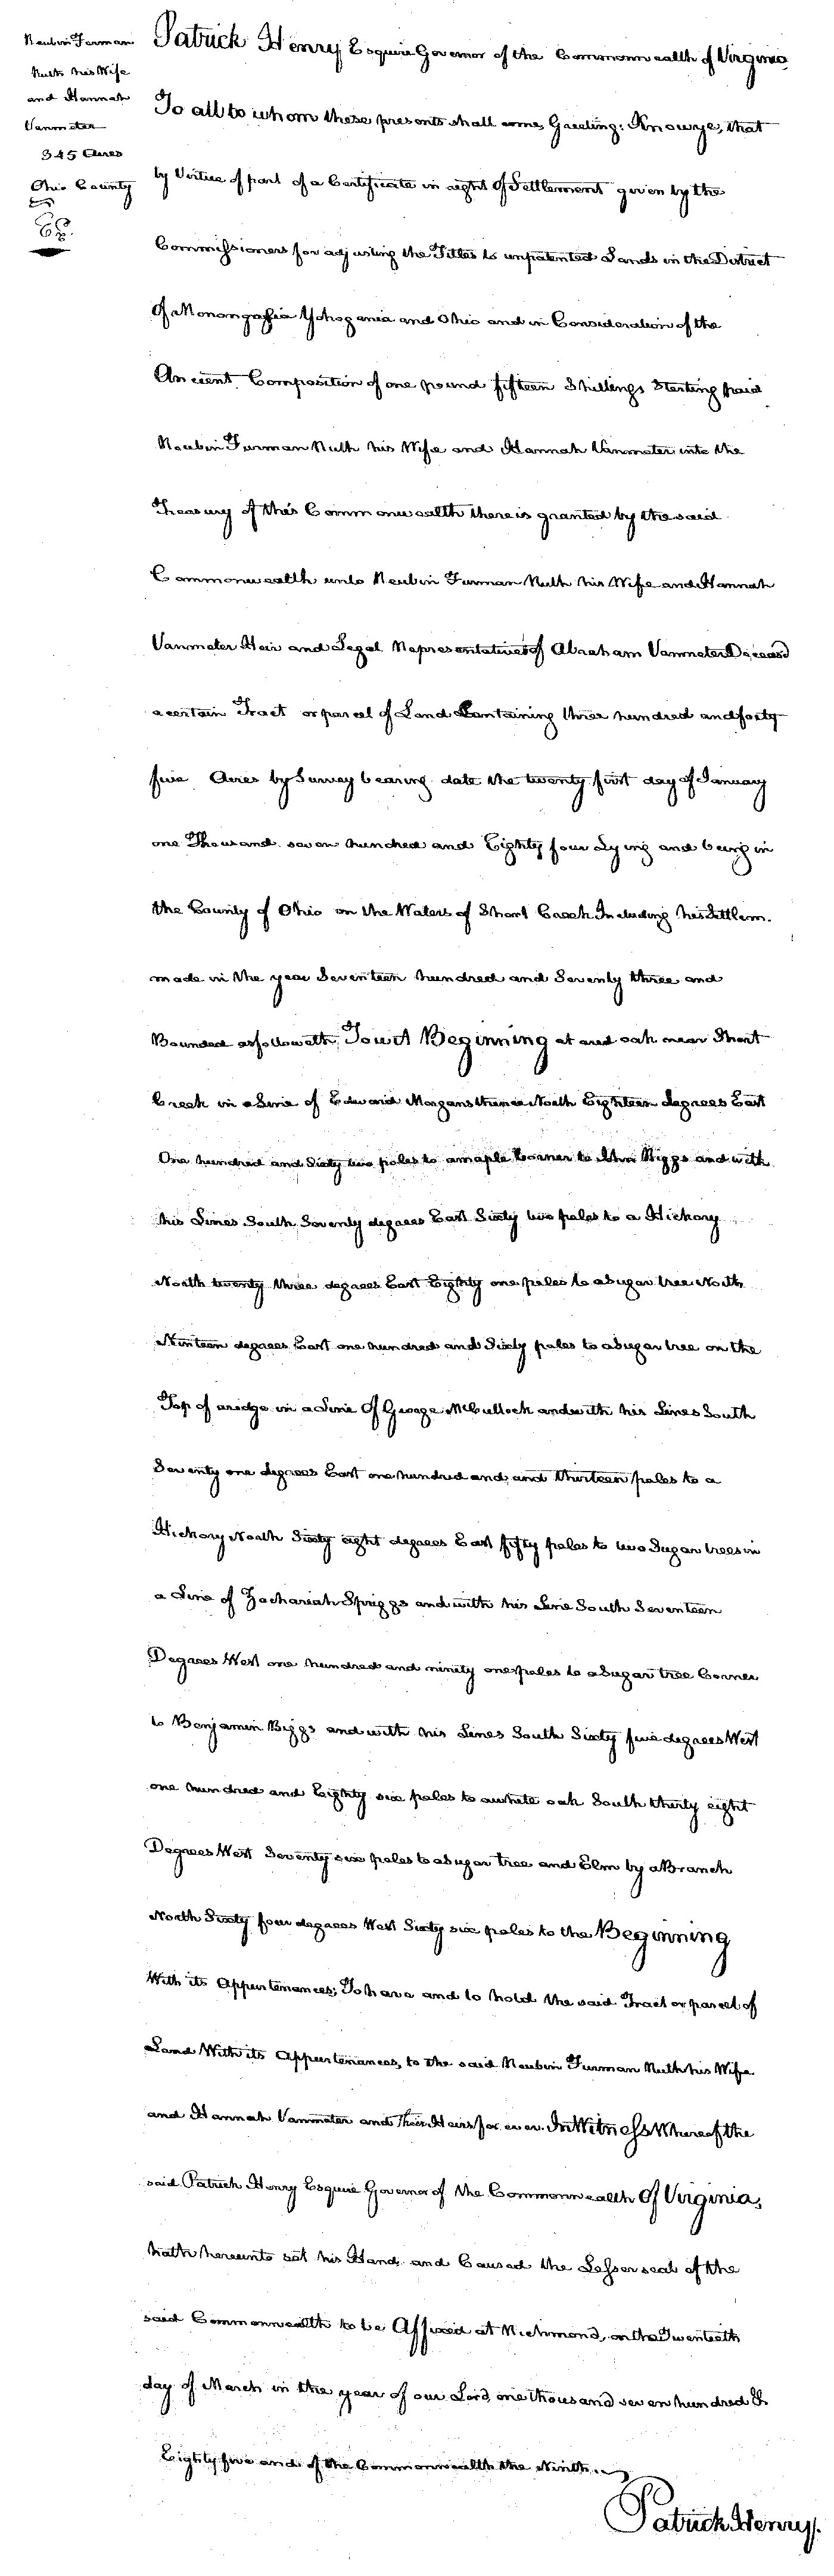 Reubin Furman
Ruth his Wife
and Hannah
Vanmeter
345 Acres
Ohio County
Ex.
Patrick Henry Esquire Governor of the Commonwealth of Virginia
To all to whom these presents shall come, Greeting: Know ye, that
by Virtue of part of a Certificate in right of Settlement given by the
Commissioners for adjusting the Titles to unpatented Lands in the District
of Monongalia Yohogania and Ohio and in Consideration of the
Ancient Composition of one pound fifteen Shillings Sterling paid
Reubin Furman Ruth his Wife and Hannah Vanmeter into the
Treasury of this Commonwealth there is granted by the said
Commonwealth unto Reubin Furman Ruth his Wife and Hannah
Vanmeter Heir and Legal Representatives of Abraham Vanmeter Deceased
a certain Tract or parcel of Land Containing three hundred and forty
five Acres by Survey bearing date the twenty first day of January
one Thousand seven hundred and Eighty four Lying and being in
the County of Ohio on the Waters of Short Creek Including his Settlem.
made in the year Seventeen hundred and Seventy three and
Bounded as followeth, Towit Beginning at a red oak near Short
Creek in a Line of Edward Morgans thence North Eighteen degrees East
One hundred and Sixty two poles to a maple Corner to John Biggs and with
his Lines South Seventy degrees East Sixty two poles to a Hickory
North twenty three degrees East Eighty one poles to a Sugar tree North
Ninteen degrees East one hundred and Sixty poles to a Sugar tree on the
Top of a ridge in a Line Of George McCulloch and with his Lines South
Seventy one degrees East one hundred and and thirteen poles to a
Hickory North Sixty eight degrees East fifty poles to two Sugar trees in
a Line of Zachariah Spriggs and with his Line South Seventeen
Degrees West one hundred and ninety one poles to a Sugar tree Corner
to Benjamin Biggs and with his Lines South Sixty five degrees West
one hundred and Eighty six poles to a white oak South thirty eight
Degrees West Seventy six poles to a Sugar tree and Elm by a Branch
North Sixty four degrees West Sixty six poles to the Beginning
With its Appurtenances; To have and to hold the said Tract or parcel of
Land With its Appurtenances, to the said Reubin Furman Ruth his Wife
and Hannah Vanmeter and Their Heirs for ever. In Witness Whereof the
said Patrick Henry Esquire Governor of the Commonwealth Of Virginia,
hath hereunto set his Hand, and Caused the Lesser seal of the
said Commonwealth to be Affixed at Richmond, on the Twentieth
day of March in the year of our Lord, one thousand seven hundred &
Eighty five and of the Commonwealth the Ninth.
Patrick Henry.